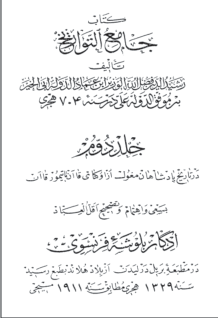 كتاب
جامع التواريخ
تأليف
رشيد الدين فضل الله الوزير ابن عماد الدولة ابى الخير
بن موفق الدولة على در سنه ٧٠۴ هجرى
جلد دوم
در تاريخ پادشاهان مغول از اوكتاى قاآن تا تيمور قاآن
بسعى و اهتمام و تصحيح اقل العباد
ادگار بلوشه فرنسوى
در مطبعه بريل در ليدن از بلاد هلاند بطبع رسيد
سنه ١٣٢٩ هجرى مطابق سنه ١٩١١ مسيحى